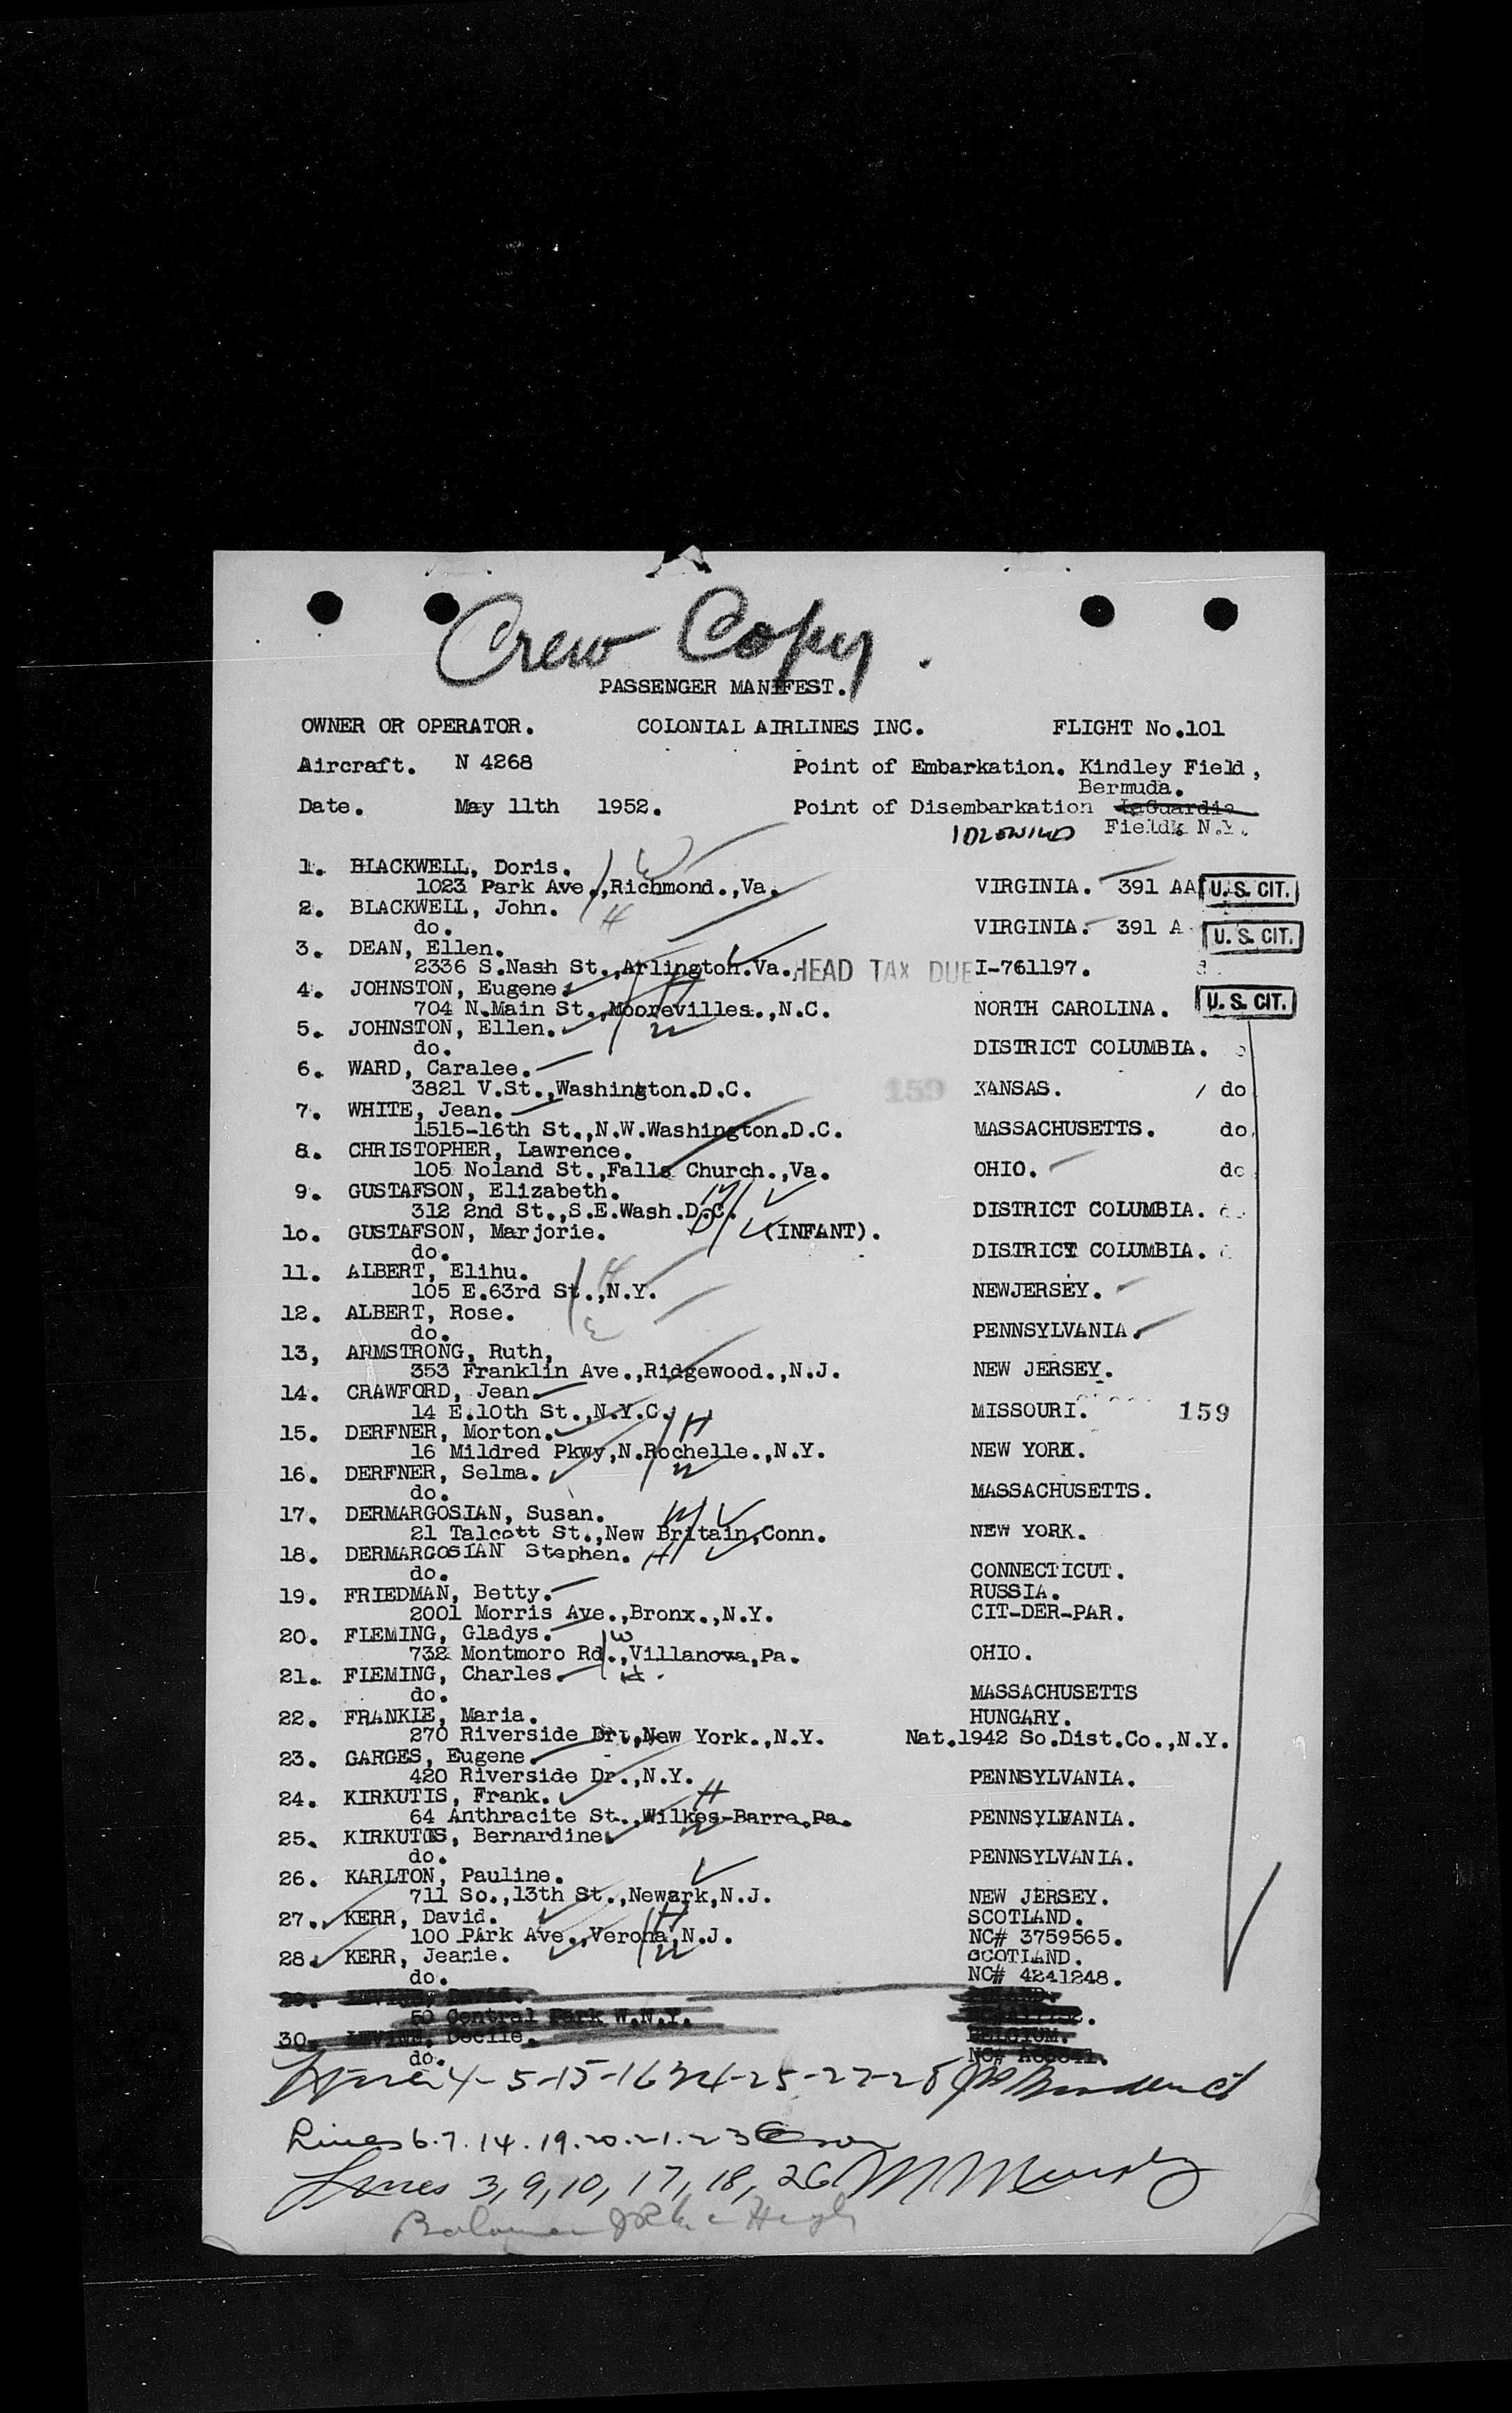 Crew Copy.
PASSENGER MANIFEST.
OWNER OR OPERATOR. COLONIAL AIRLINES INC. FLIGHT No.101
Aircraft. N 4268 Point of Embarkation. Kindley Field,
Bermuda.
Date. May 11th 1952. Point of Disembarkation LaGuardia
IDLEWILD Field, N.Y.
1. BLACKWELL, Doris. W
1023 Park Ave.,Richmond.,Va. VIRGINIA. 391 AA U.S. CIT.
2. BLACKWELL, John. H
do. VIRGINIA. 391 A U.S. CIT.
3. DEAN, Ellen.
2336 S.Nash St.,Arlington.Va. HEAD TAX DUE I-761197.
4. JOHNSTON, Eugene. H
704 N.Main St.,Moorevilles.,N.C. NORTH CAROLINA. U.S. CIT.
5. JOHNSTON, Ellen. W
do. DISTRICT COLUMBIA.
6. WARD, Caralee.
3821 V.St.,Washington.D.C. 159 KANSAS. / do
7. WHITE, Jean.
1515-16th St.,N.W.Washington.D.C. MASSACHUSETTS. do.
8. CHRISTOPHER, Lawrence.
105 Noland St.,Falls Church.,Va. OHIO. do
9. GUSTAFSON, Elizabeth. M
312 2nd St.,S.E.Wash.D.C. DISTRICT COLUMBIA.
10. GUSTAFSON, Marjorie. D (INFANT).
do. DISTRICT COLUMBIA.
11. ALBERT, Elihu. H
105 E.63rd St.,N.Y. NEWJERSEY.
12. ALBERT, Rose.
do. PENNSYLVANIA.
13, ARMSTRONG, Ruth,
353 Franklin Ave.,Ridgewood.,N.J. NEW JERSEY.
14. CRAWFORD, Jean.
14 E.10th St.,N.Y.C. MISSOURI. 159
15. DERFNER, Morton. H
16 Mildred Pkwy,N.Rochelle.,N.Y. NEW YORK.
16. DERFNER, Selma. W
do. MASSACHUSETTS.
17. DERMARGOSIAN, Susan. W
21 Talcott St.,New Britain,Conn. NEW YORK.
18. DERMARGOSIAN Stephen. H
do. CONNECTICUT.
19. FRIEDMAN, Betty. RUSSIA.
2001 Morris Ave.,Bronx.,N.Y. CIT-DER-PAR.
20. FLEMING, Gladys. W
732 Montmoro Rd.,Villanova,Pa. OHIO.
21. FLEMING, Charles. H.
do. MASSACHUSETTS
22. FRANKIE, Maria. HUNGARY.
270 Riverside Dr.,New York.,N.Y. Nat.1942 So.Dist.Co.,N.Y.
23. GARGES, Eugene.
420 Riverside Dr.,N.Y. PENNSYLVANIA.
24. KIRKUTIS, Frank. H
64 Anthracite St.,Wilkes-Barre,Pa. PENNSYLVANIA.
25. KIRKUTIS, Bernardine. W
do. PENNSYLVANIA.
26. KARLTON, Pauline.
711 So.,13th St.,Newark,N.J. NEW JERSEY.
27. KERR, David. H SCOTLAND.
100 PArk Ave.,Verona,N.J. NC# 3759565.
28. KERR, Jeanie. W SCOTLAND.
do. NC# 4241248.
29. LEVINE,
50 Central Park W.N.Y.
30. LEVINE, Cecile. BELGIUM.
do. NC#
Lines 4-5-15-16 24-25-27-28
Lines 6.7.14.19.20.21.23
Lines 3,9,10,17,18,26